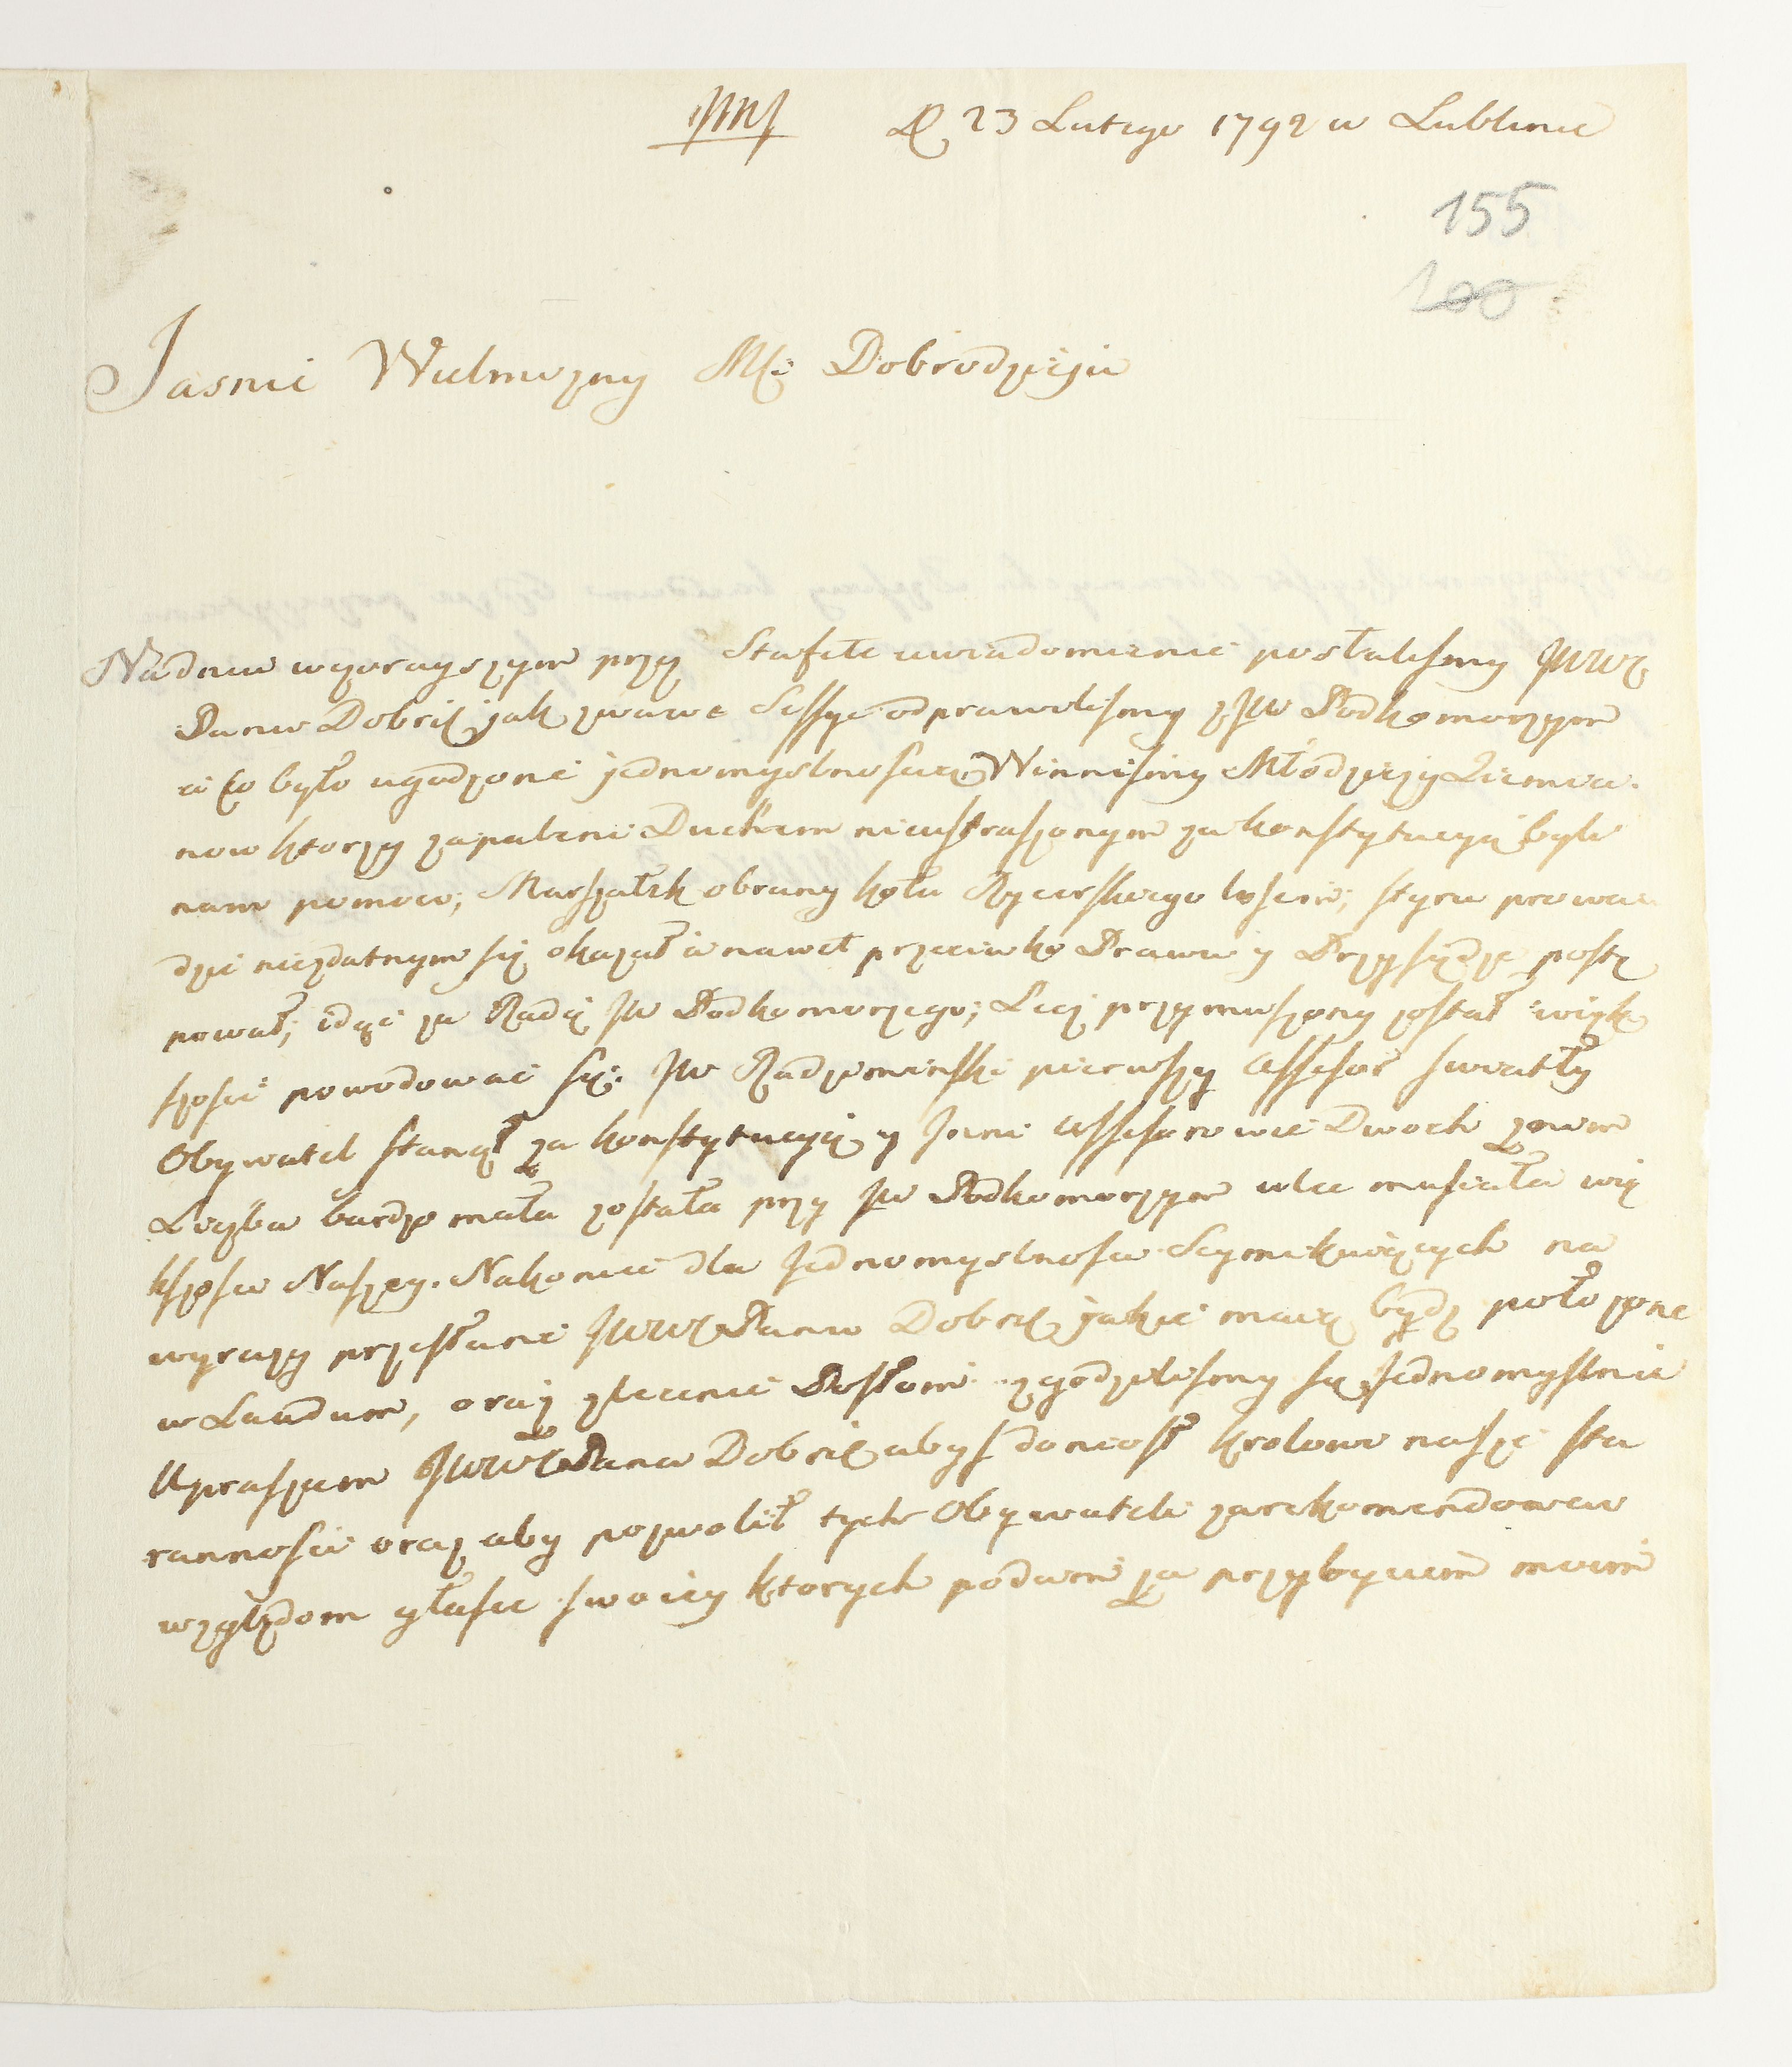 D 23 Lutego 1792 w Lublinie
155
200
Jasnie Wielmozny Mci Dobrodzieju
Na dniu wczorayszym przy Stafete uwiadomienie postalismy JWWc
Panu Dobrii jak zwawe Sessye odprawilismy z JW Podkomorzym
a co było ugodzone jednomyslnoscią Winnismy Młodzieży Ziemia
now ktorzy zapaleni Duchem nieustraszonym za konstytucyą byli
nam pomocą; Marszałek obrany koła Rycerskiego losem; styru prowa
dzic niezdatnym się okazał a nawet przeciwko Prawu y Przysiędze postę
pował; idąc za Radą JW Podkomorzego; Lecz przymuszony został więk
szości powodować się; JW Radziminski pierwszy Assesor swiatły
Obywatel stanął za konstytucyą y Inni Assesorowie Dwoch zowem
Liczba bardzo mała została przy JW Podkomorzym ulec musiała wię
kszosci Naszey. Nakoniec dla Jednomyslnosci Seymikuiących na
wyrazy przesłane JWWc Panu Dobrii jakie maią bydz położone
w Laudum, oraz zlecenie Posłom zgodzilismy się Jednomyslnie
Upraszam JWWc Pana Dobrii abys doniosł krolowi nasze sta
rannosci oraz aby pozwolił tych Obywateli zarekomendowac
względom y łasce swoiey ktorych podam za przybyciem moim